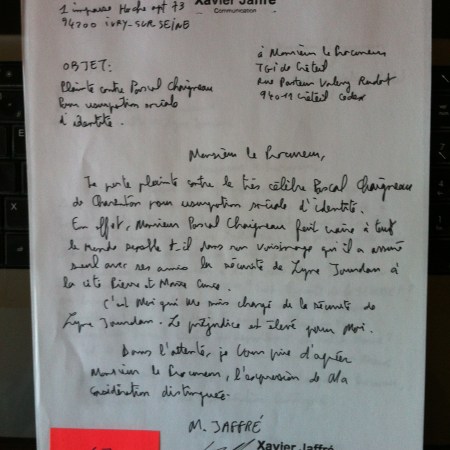 Xavier Jaffré
Communication
1 impasse Hoche apt 73
94200 IVRY-SUR SEINE
OBJET:
Plainte contre Pascal Chaigneau
Pour usurpation sociale
d'identité.
à Monsieur le Procureur
TGI de Créteil
Rue Pasteur Valery Radot
94011 Créteil Cedex
Monsieur le Procureur,
Je porte plainte contre le très célèbre Pascal Chaigneau
de Charenton pour usurpation sociale d'identité.
En effet, Monsieur Pascal Chaigneau fait croire à tout
le monde semble t-il dans son voisinage qu'il a assuré
seul avec ses amis la sécurité de Lyne Jourdan à
la cité Pierre et Marie Curie.
C'est Moi qui me suis chargé de la sécurité de
Lyne Jourdan. Le préjudice est élevé pour Moi.
Dans l'attente, je Vous prie d'agréer
Monsieur le Procureur, l'expression de Ma
Considération distinguée.
M. JAFFRÉ
Xavier Jaffré